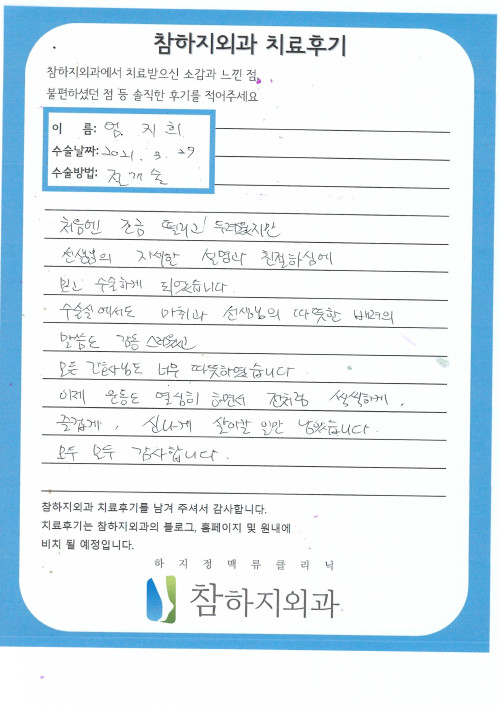 참하지외과 치료후기
참하지외과에서 치료받으신 소감과 느낀 점,
불편하셨던 점 등 솔직한 후기를 적어주세요
이 름: 엄 지 희
수술날짜: 2021. 3. 29
수술방법: 전개술
처음엔 조금 떨리고 두려웠지만
선생님의 자세한 설명과 친절하심에
믿고 수술하게 되었습니다.
수술실에서도 마취과 선생님의 따뜻한 배려의
말씀도 감동
모든 간호사님도 너무 따뜻하였습니다
이제 운동도 열심히 하면서 전처럼 씩씩하게,
즐겁게, 신나게 살아갈 일만 남았습니다.
모두 모두 감사합니다.
참하지외과 치료후기를 남겨 주셔서 감사합니다.
치료후기는 참하지외과의 블로그, 홈페이지 및 원내에
비치 될 예정입니다.
하지정맥류클리닉
참하지외과